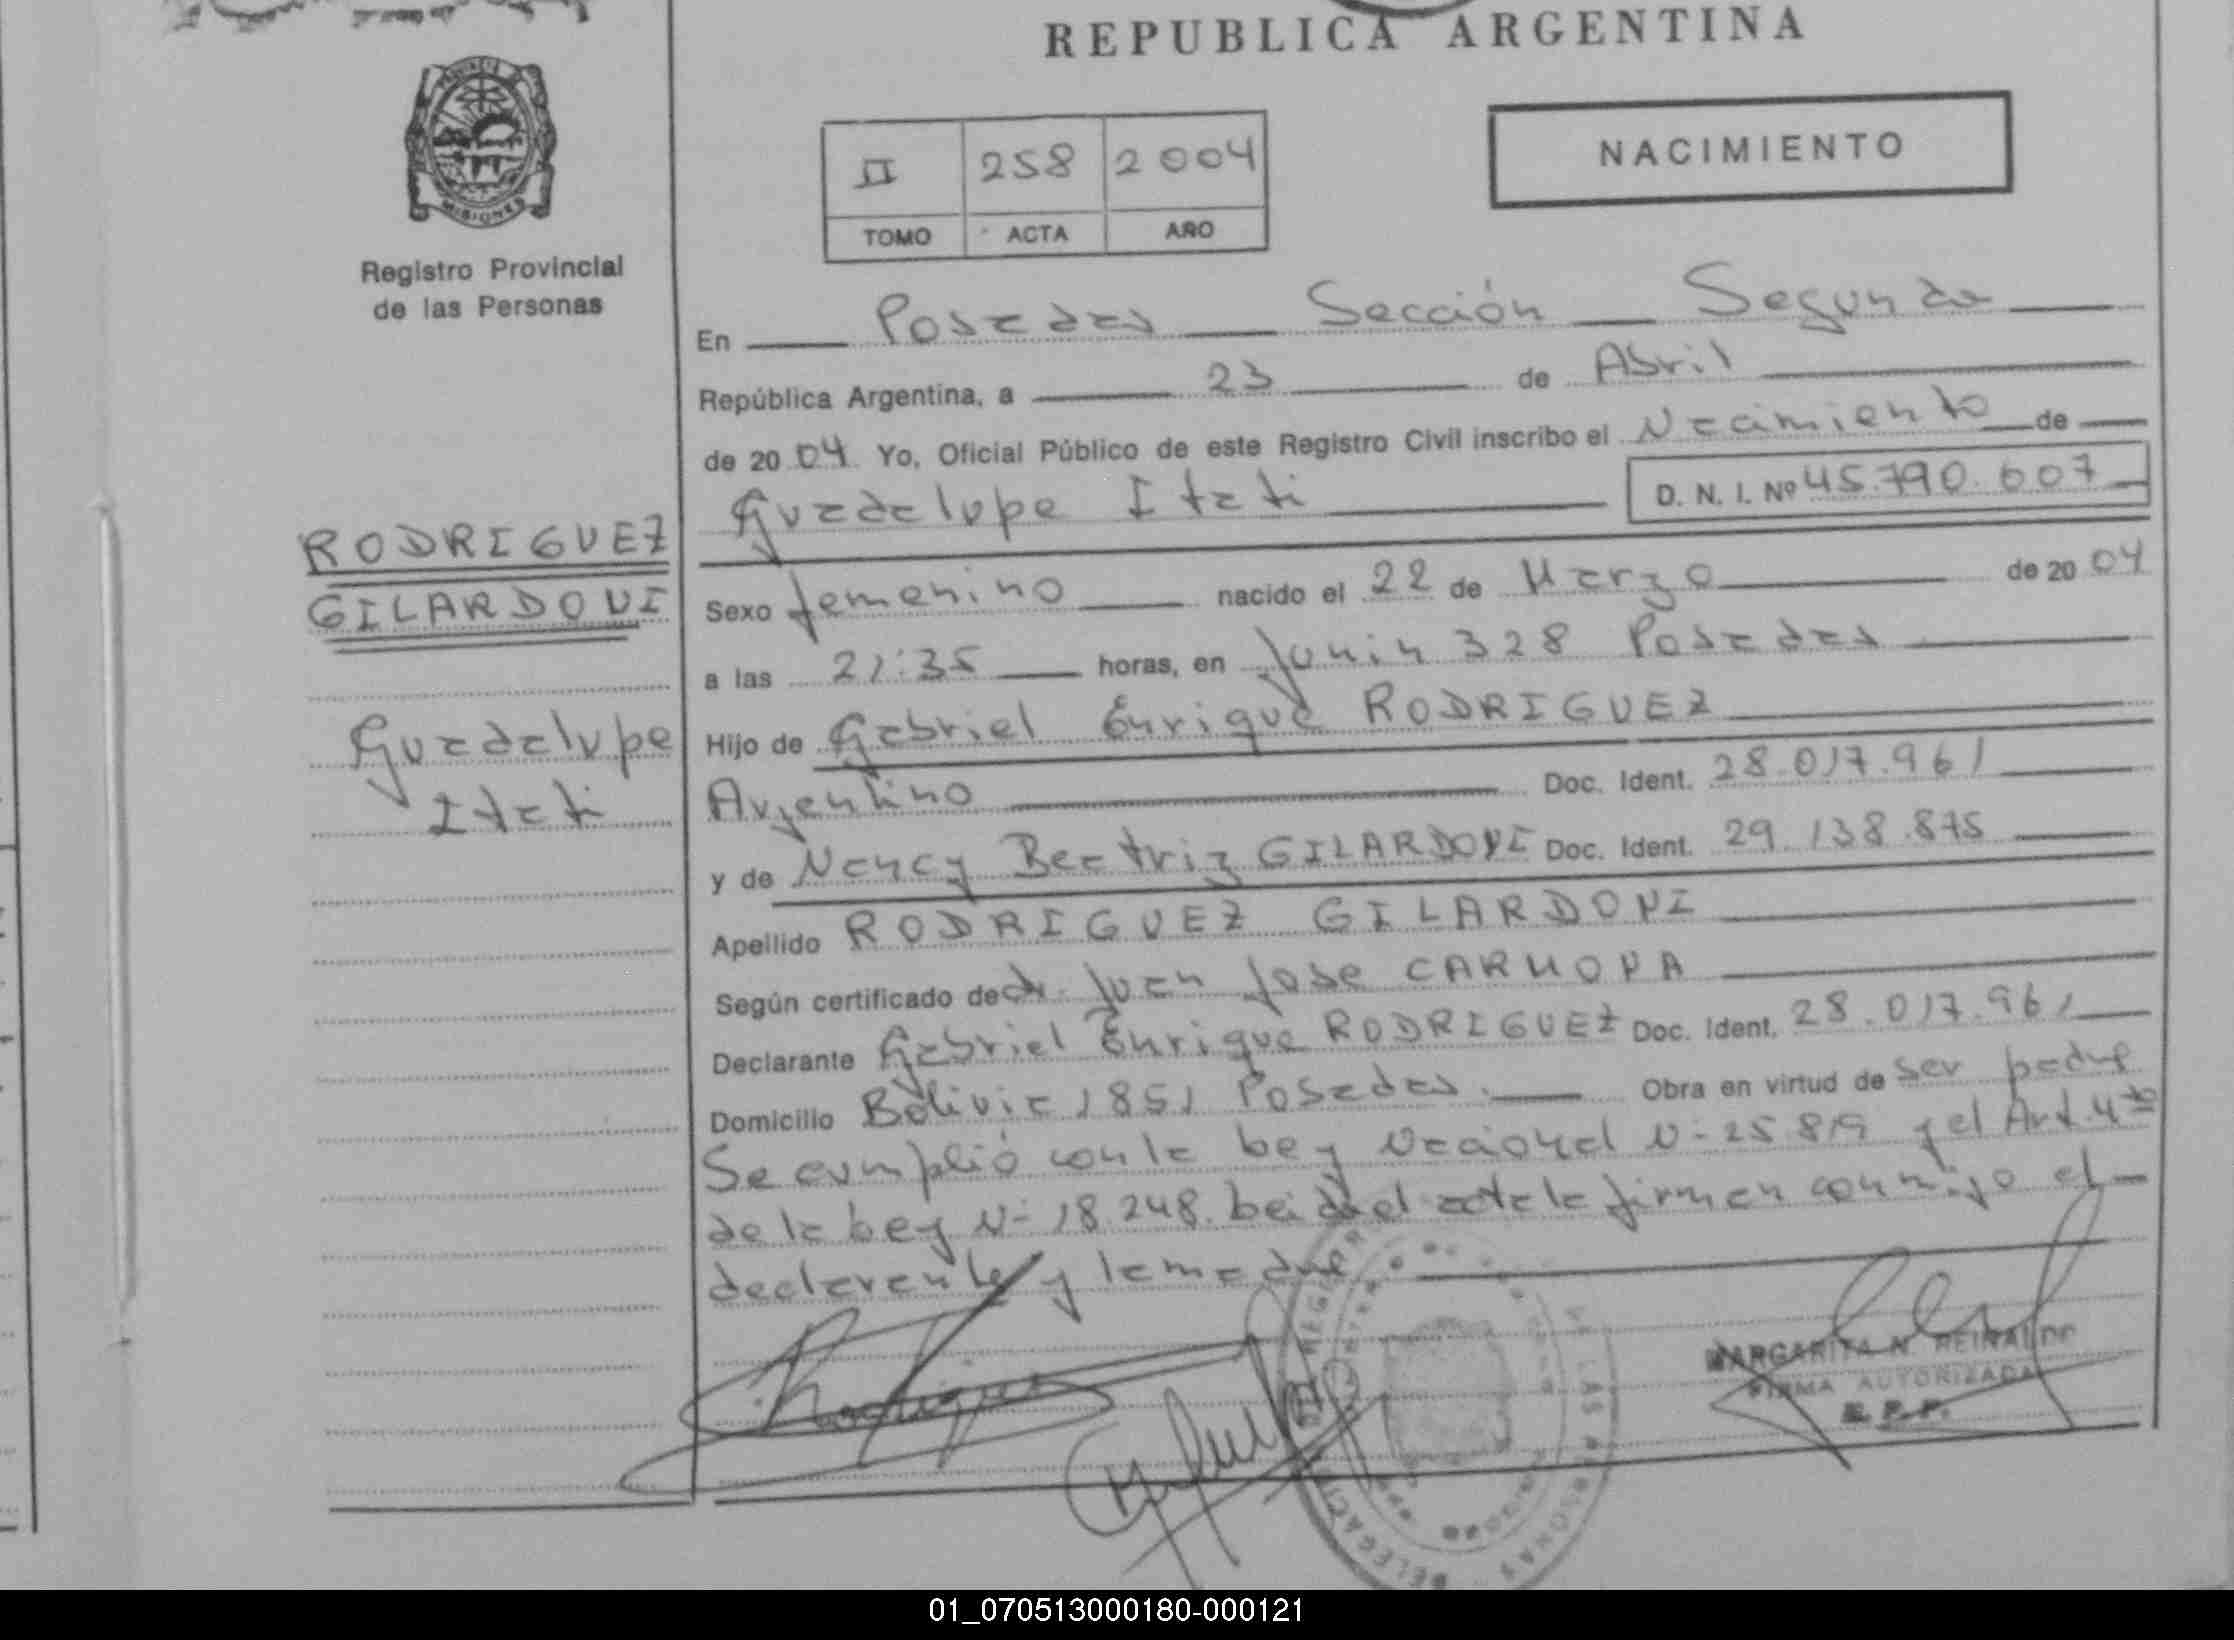 REPUBLICA ARGENTINA
MISIONES
Registro Provincial
de las Personas
II 258 2004
TOMO ACTA AÑO
NACIMIENTO
En Posadas Sección Segunda
República Argentina, a 23 de Abril
de 20 04 Yo, Oficial Público de este Registro Civil inscribo el Nacimiento de
Guadalupe Itati D. N. I. Nº 45.790.607
RODRIGUEZ
GILARDONI
Guadalupe
Itati
Sexo femenino nacido el 22 de Marzo de 20 04
a las 21:35 horas, en Junin 328 Posadas
Hijo de Gabriel Enrique RODRIGUEZ
Argentino Doc. Ident. 28.017.961
y de Nancy Beatriz GILARDONI Doc. Ident. 29.138.875
Apellido RODRIGUEZ GILARDONI
Según certificado de dr. Juan Jose CARMONA
Declarante Gabriel Enrique RODRIGUEZ Doc. Ident. 28.017.961
Domicilio Bolivia 1851 Posadas. Obra en virtud de ser padre
Se cumplió con la Ley Nacional N- 25819 y el Art. 4to
de la Ley N- 18.248. Leida el acta la firman conmigo el
declarante y la madre.
Rodriguez
MARGARITA N. REINALDO
FIRMA AUTORIZADA
R. P. P.
01_070513000180-000121